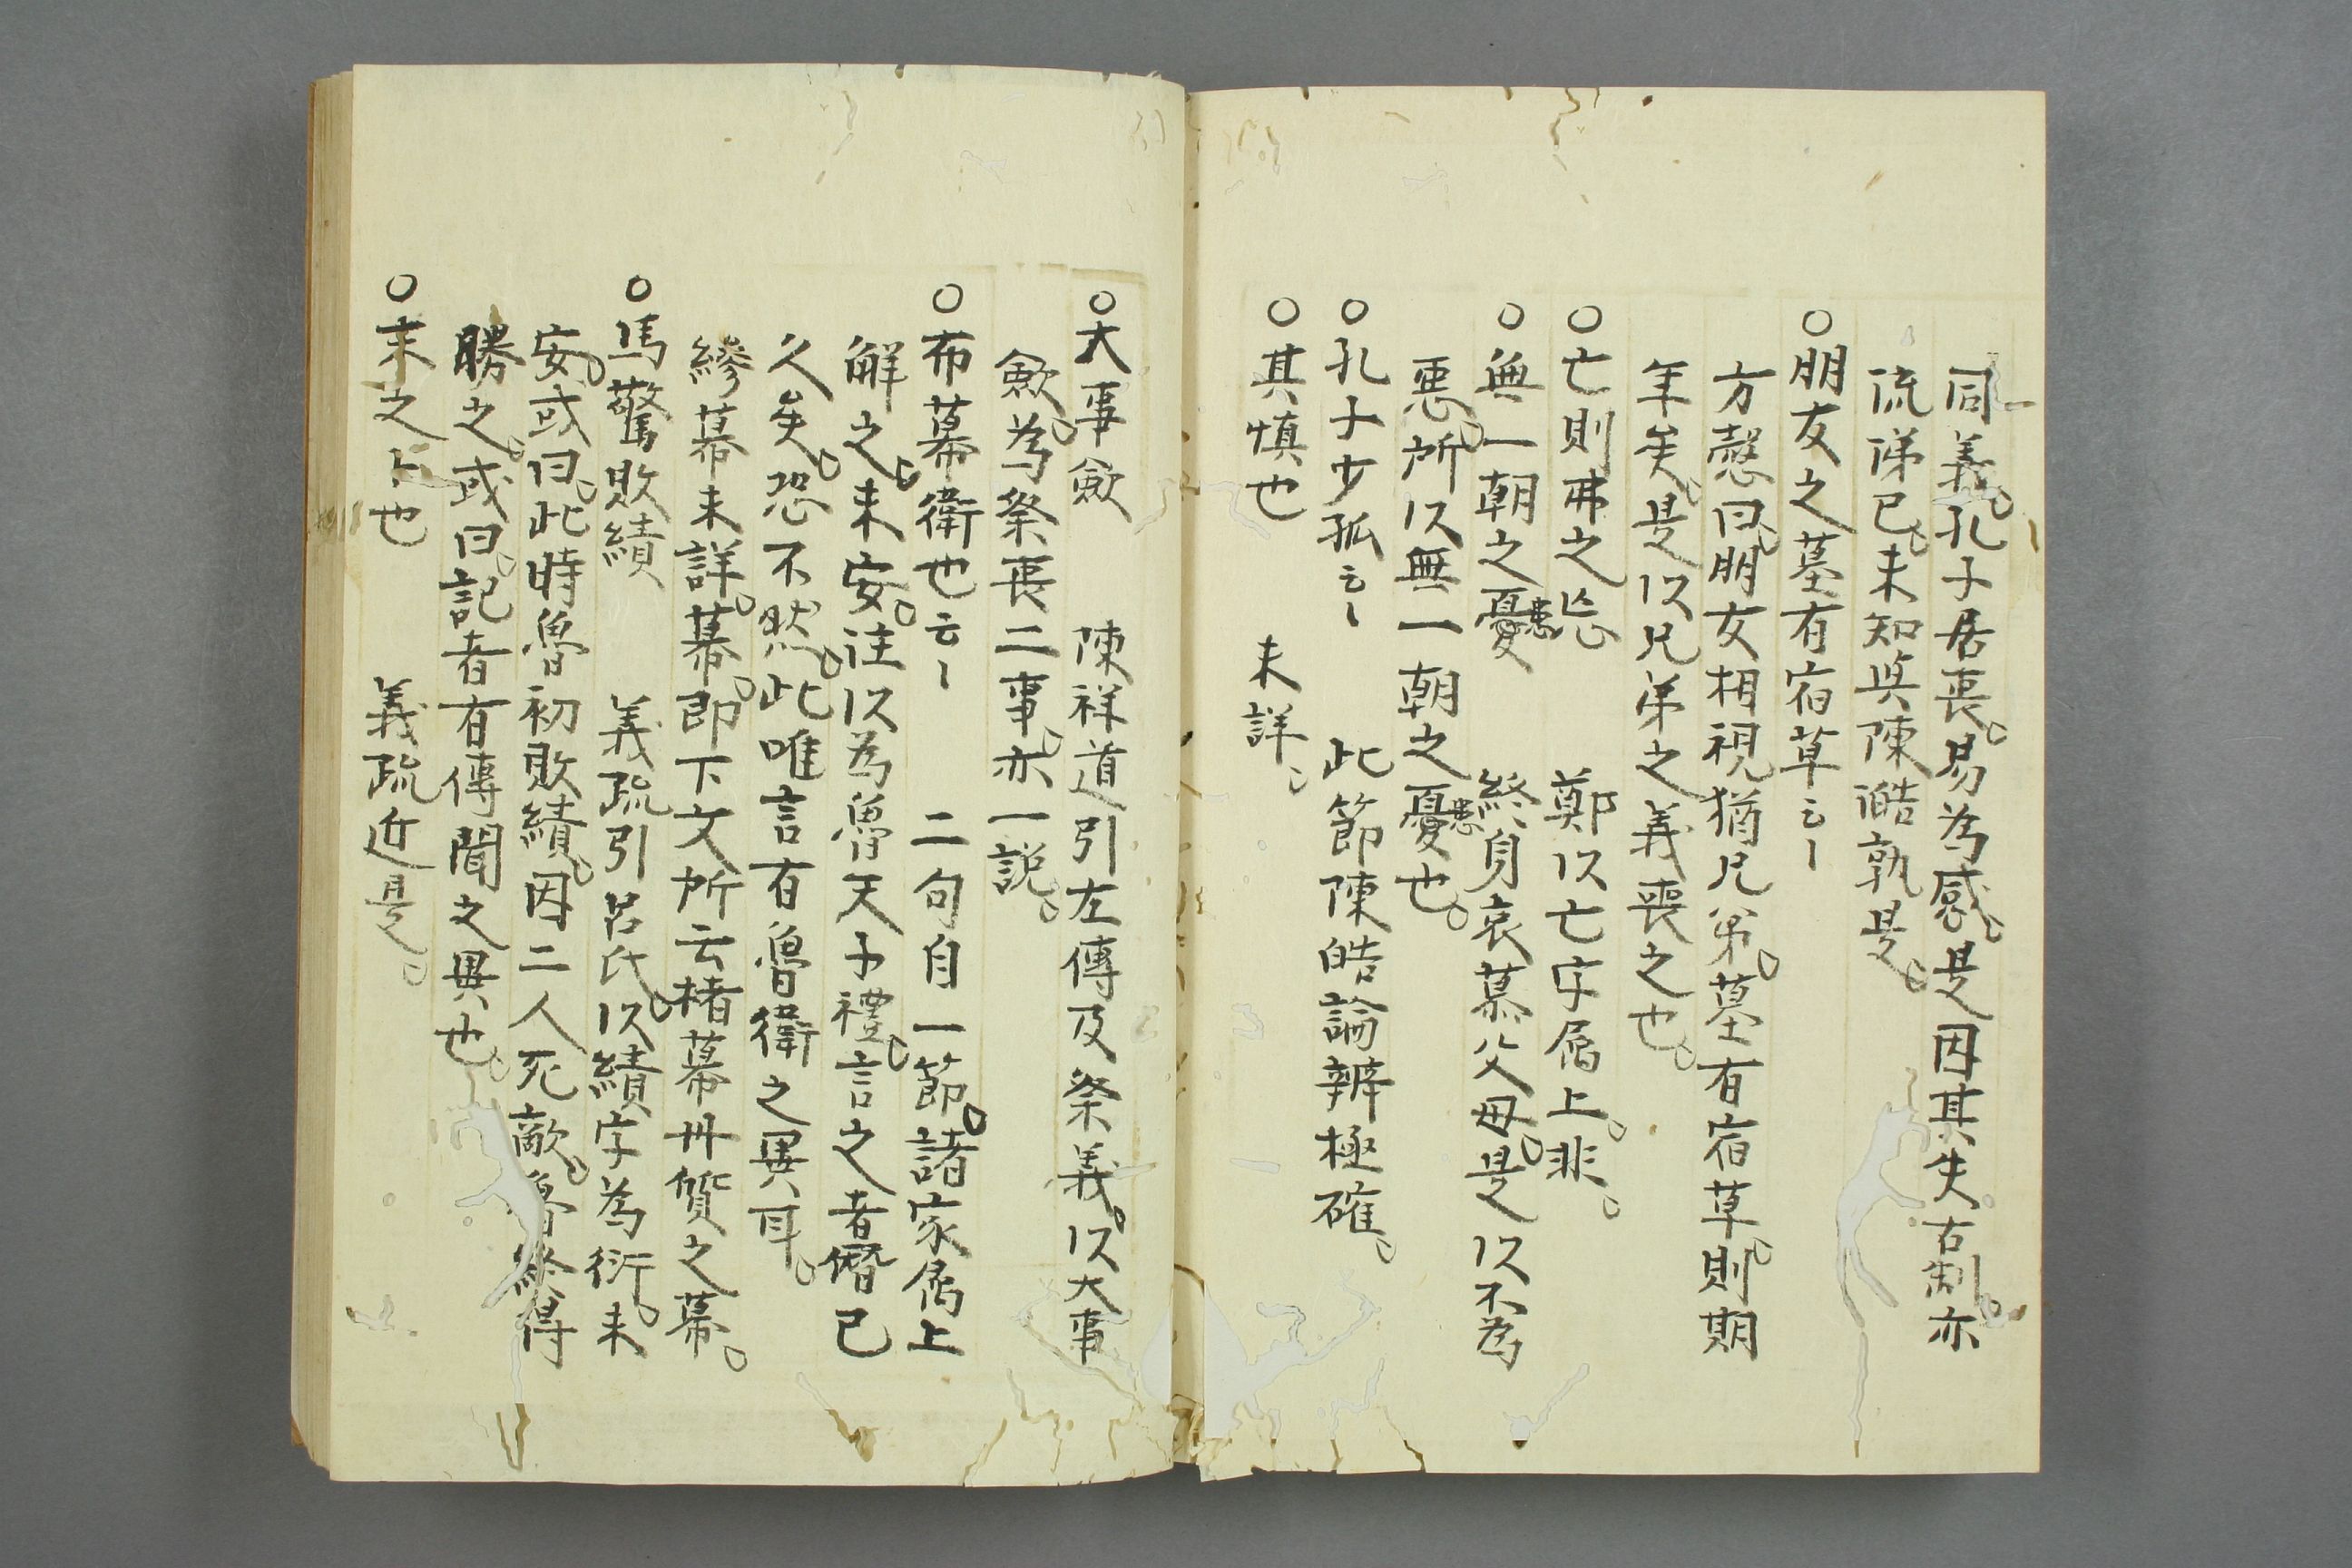 同義。孔子居喪。易為感。是因其失古制。亦
流涕已。未知與陳澔孰是。
○朋友之墓有宿草云〻
方愨曰。朋友相視猶兄弟。墓有宿草。則期
年矣。是以兄弟之義喪之也。
○亡則弗之忘　鄭以亡字屬上。非。
○無一朝之憂患　終身哀慕父母。是以不為
惡。所以無一朝之憂患也。
○孔子少孤云〻　此節陳皓論辨極確。
○其慎也　未詳。
○大事斂　陳祥道引左傳及祭義。以大事
斂。為祭喪二事。亦一說。
○布幕衛也云〻　二句自一節。諸家屬上
解之。未安。註以為魯天子禮。言之者僭已
久矣。恐不然。此唯言有魯衛之異耳。
縿幕未詳。幕。即下文所云楮幕丹質之幕。
○馬驚敗績　義疏引呂氏。以績字為衍。未
安。或曰。此時魯初敗績。因二人死敵。魯終得
勝之。或曰。記者有傳聞之異也。
○末之卜也　義疏近是。